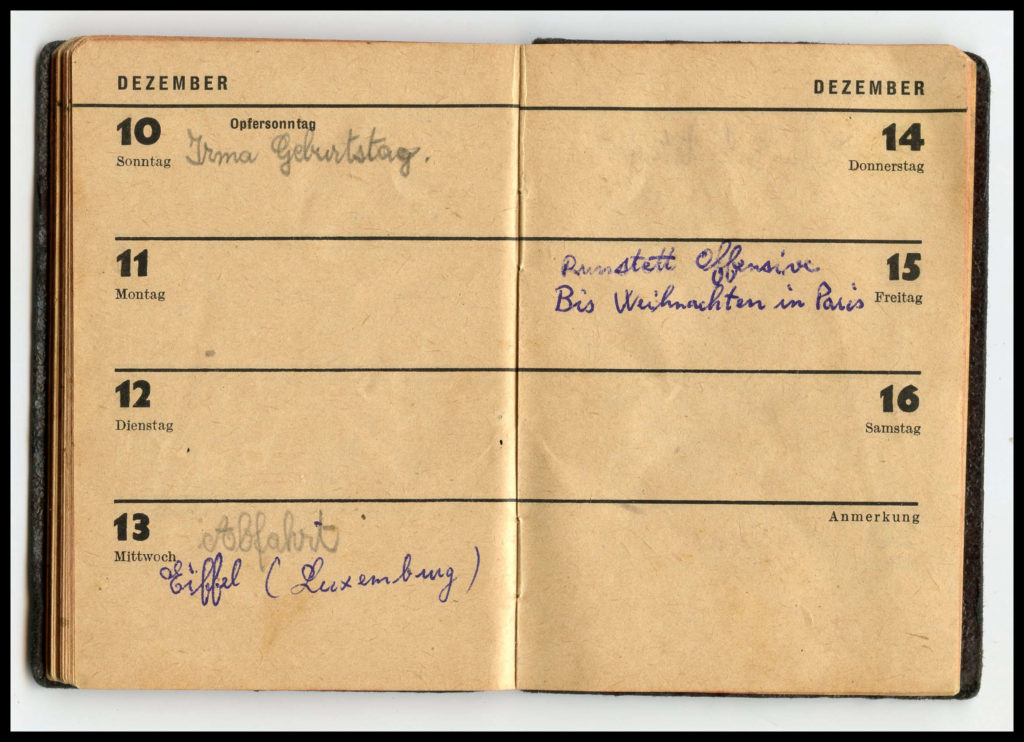 DEZEMBER
10
Opfersonntag
Sonntag
Irma Geburtstag.
11
Montag
12
Dienstag
13
Abfahrt
Mittwoch
Eiffel (Luxemburg)
DEZEMBER
14
Donnerstag
Runstett Offensive
15
Freitag
Bis Weihnachten in Paris
16
Samstag
Anmerkung